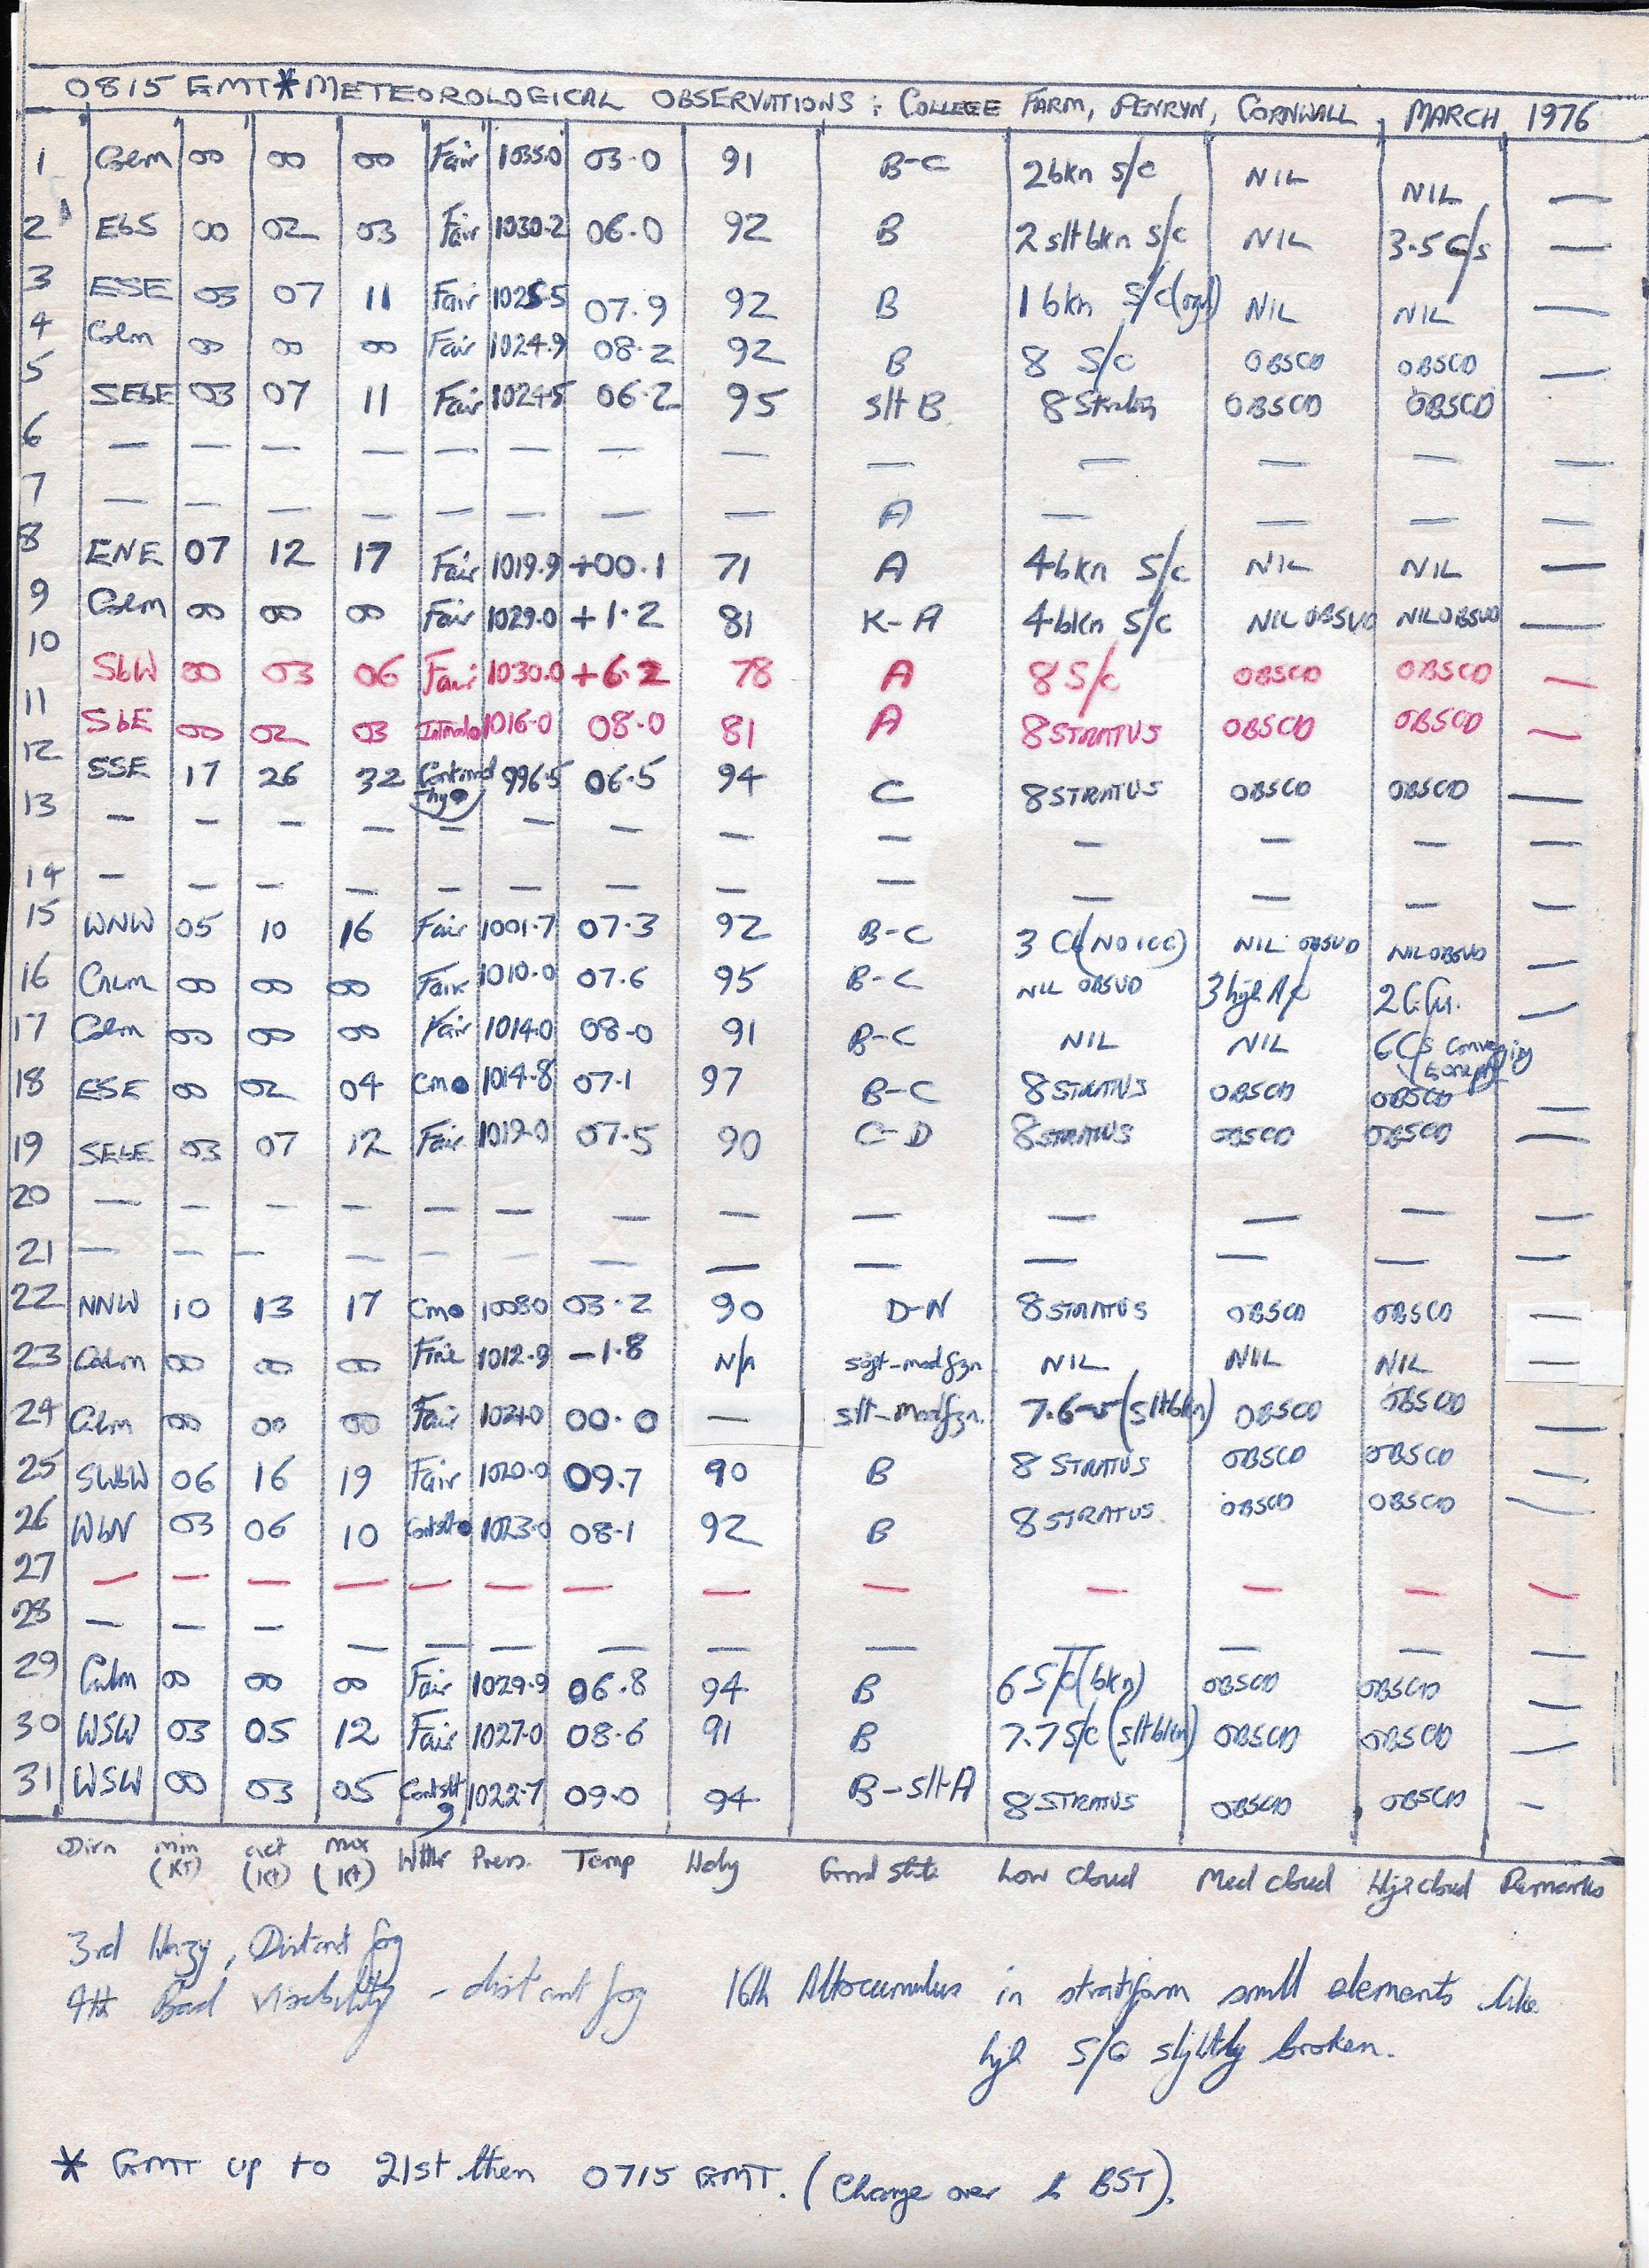 0815 GMT * METEOROLOGICAL OBSERVATIONS : COLLEGE FARM, PENRYN, CORNWALL, MARCH 1976
1 Calm 00 00 00 Fair 1035.0 03.0 91 B-C 2 bkn S/c NIL NIL —
2 EbS 00 02 03 Fair 1030.2 06.0 92 B 2 slt bkn S/c NIL 3.5 C/s —
3 ESE 03 07 11 Fair 1025.5 07.9 92 B 1 bkn S/c NIL NIL —
4 Calm 00 00 00 Fair 1024.9 08.2 92 B 8 S/c OBSCD OBSCD —
5 SEbE 03 07 11 Fair 1024.5 06.2 95 slt B 8 Stratus OBSCD OBSCD
6 — — — — — — — — — — — — —
7 — — — — — — — — A — — — —
8 ENE 07 12 17 Fair 1019.9 +00.1 71 A 4 bkn S/c NIL NIL —
9 Calm 00 00 00 Fair 1029.0 +1.2 81 K-A 4 bkn S/c NIL OBSVD NIL OBSVD —
10 SbW 00 03 06 Fair 1030.0 +6.2 78 A 8 S/c OBSCD OBSCD —
11 SbE 00 02 03 1016.0 08.0 81 A 8 STRATUS OBSCD OBSCD —
12 SSE 17 26 32 996.5 06.5 94 C 8 STRATUS OBSCD OBSCD —
13 — — — — — — — — — — — — —
14 — — — — — — — — — — — — —
15 WNW 05 10 16 Fair 1001.7 07.3 92 B-C 3 NIL OBSVD NIL OBSVD —
16 Calm 00 00 00 Fair 1010.0 07.6 95 B-C NIL OBSVD 3 high A/c 2 C.Cu. —
17 Calm 00 00 00 Fair 1014.0 08.0 91 B-C NIL NIL 6 C/s
18 ESE 00 02 04 Cm● 1014.8 07.1 97 B-C 8 STRATUS OBSCD OBSCD —
19 SEbE 03 07 12 Fair 1019.0 07.5 90 C-D 8 STRATUS OBSCD OBSCD —
20 — — — — — — — — — — — — —
21 — — — — — — — — — — — — —
22 NNW 10 13 17 Cm● 1008.0 03.2 90 D-N 8 STRATUS OBSCD OBSCD —
23 Calm 00 00 00 Fine 1012.9 -1.8 N/A NIL NIL NIL —
24 Calm 00 00 00 Fair 1021.0 00.0 — slt-mod fzn. 7.6 (slt bkn) OBSCD OBSCD —
25 SWbW 06 16 19 Fair 1020.0 09.7 90 B 8 STRATUS OBSCD OBSCD —
26 WbN 03 06 10 Cont slt ● 1023.0 08.1 92 B 8 STRATUS. OBSCD OBSCD —
27 — — — — — — — — — — — — —
28 — — — — — — — — — — — — —
29 Calm 00 00 00 Fair 1029.9 06.8 94 B 6 S/c (bkn) OBSCD OBSCD
30 WSW 03 05 12 Fair 1027.0 08.6 91 B 7.7 S/c (slt bkn) OBSCD OBSCD —
31 WSW 00 03 05 Cont slt 1022.7 09.0 94 B-slt A 8 STRATUS OBSCD OBSCD -
Dirn min (KT) act (Kt) max (Kt) Wthr Press. Temp Hdty Grnd state Low Cloud Med cloud High cloud Remarks
3rd Hazy, Distant fog
4th Bad visibility - distant fog 16th Altocumulus in stratiform small elements like
high S/C slightly broken.
* GMT up to 21st then 0715 GMT. (Change over to BST).